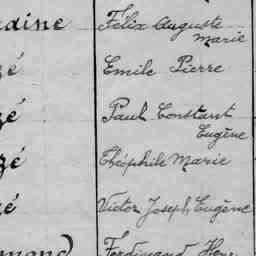 adine Félix Auguste
Marie
zé Emile Pierre
zé Paul Constant
Eugène
zé Théophile Marie
zé Victor Joseph Eugène
mond Ferdinand Henr